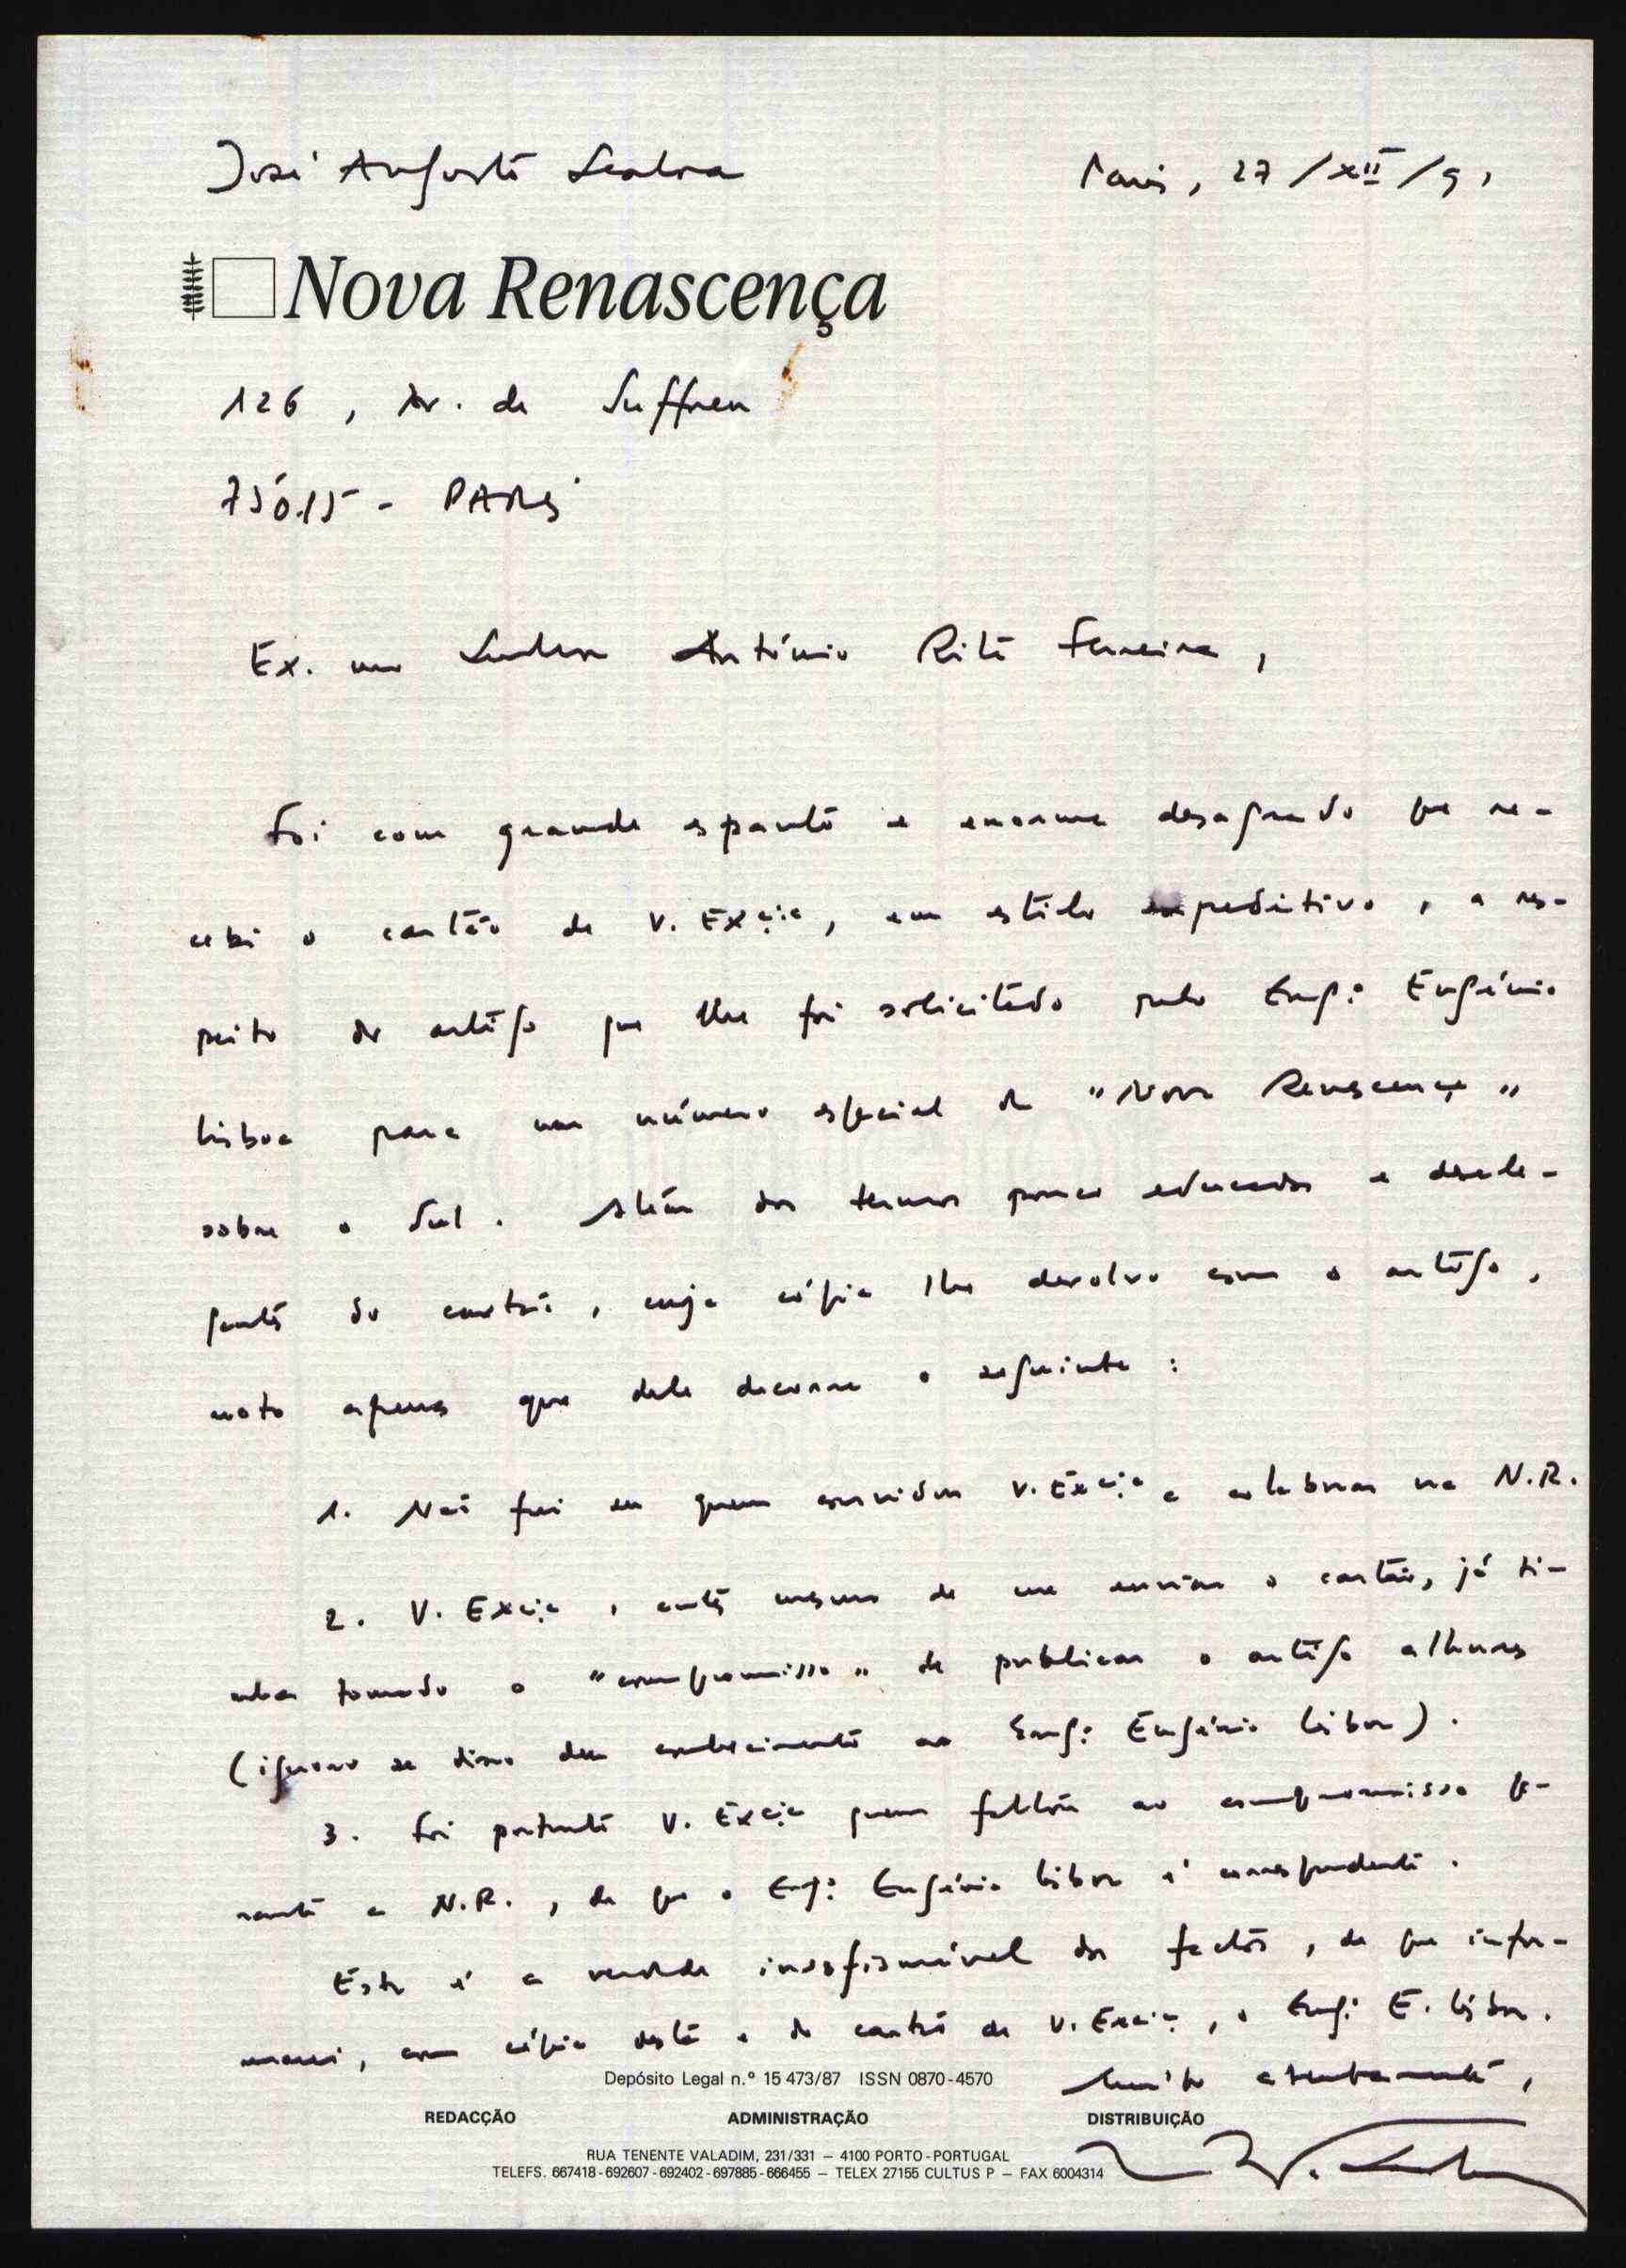 José Augusto Seabra
Paris, 27/XII/91
Nova Renascença
126, Av. de Suffren
75015 - PARIS
Ex. mo Senhor António Rita Ferreira,
Foi com grande espanto e enorme desagrado que re-
cebi o cartão de V. Excia, em estilo expeditivo, a res-
peito do artigo que lhe foi solicitado pelo Engº Eugénio
Lisboa para um número especial da "Nova Renascença"
sobre o Sul. Além dos termos pouco educados e desele-
gantes do cartão, cuja cópia lhe devolvo com o artigo,
noto apenas que dele decorre o seguinte:
1. Não fui eu quem convidou V. Excia a colaborar na N.R.
2. V. Excia, antes mesmo de me enviar o cartão, já ti-
nha tomado o "compromisso" de publicar o artigo alhures
(ignoro se disso deu conhecimento ao Engº Eugénio Lisboa).
3. Foi portanto V. Excia quem faltou ao compromisso pe-
rante a N.R., de que o Engº Eugénio Lisboa é correspondente.
Esta é a verdade insofismável dos factos, de que infor-
marei, com cópia desta e do cartão de V. Excia, o Engº E. Lisboa.
Muito atentamente,
Depósito Legal n.º 15 473/87 ISSN 0870-4570
REDACÇÃO ADMINISTRAÇÃO DISTRIBUIÇÃO
RUA TENENTE VALADIM, 231/331 — 4100 PORTO-PORTUGAL
TELEFS. 667418-692607-692402-697885-666455 — TELEX 27155 CULTUS P — FAX 6004314